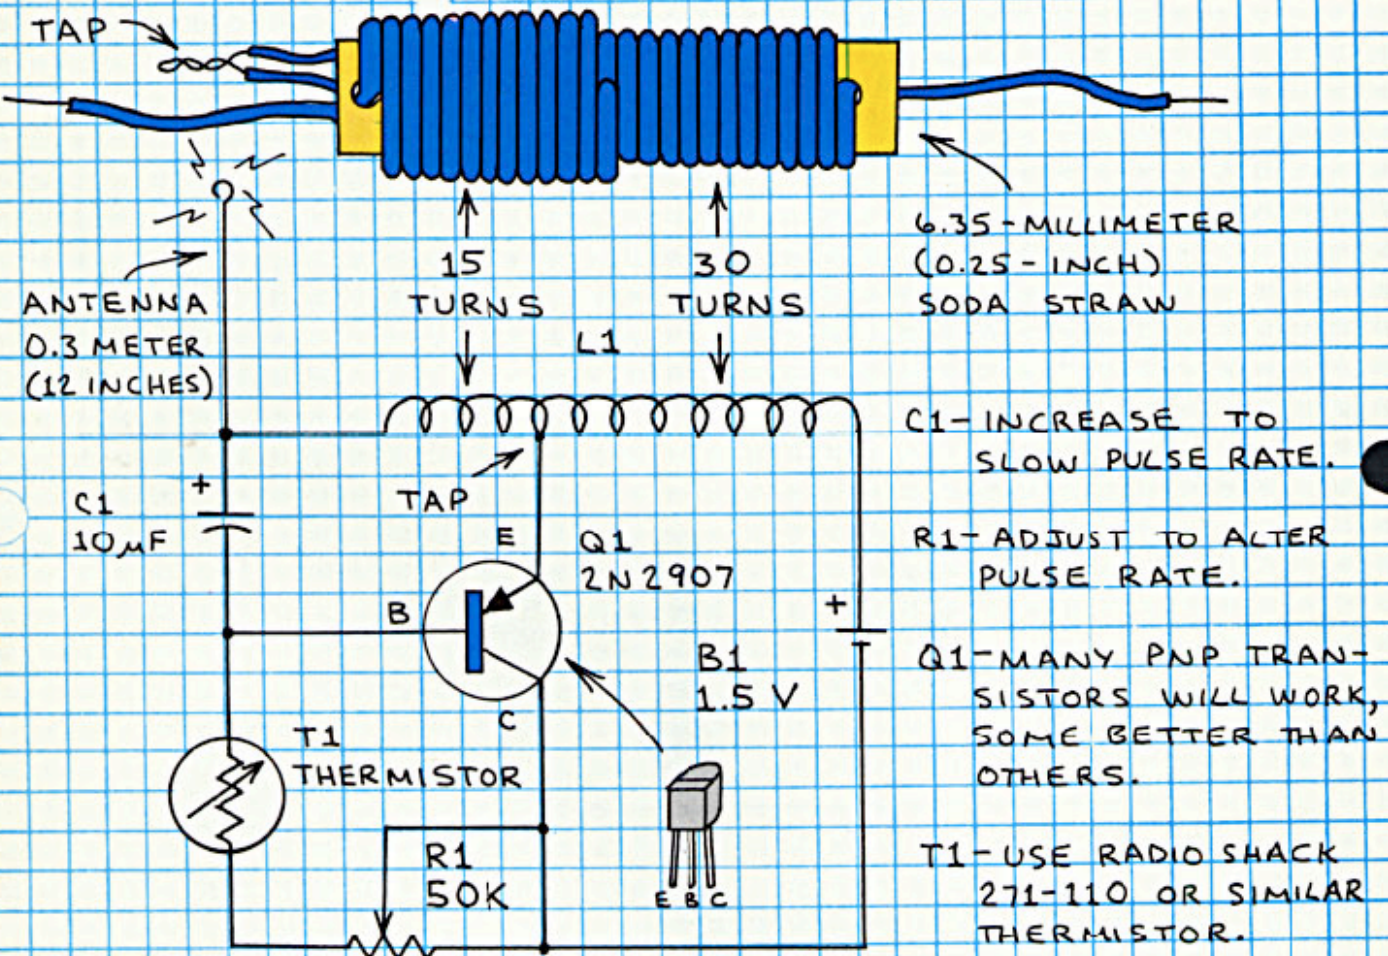 TAP
15
TURNS
30
TURNS
L1
6.35-MILLIMETER
(0.25-INCH)
SODA STRAW
ANTENNA
0.3 METER
(12 INCHES)
+
C1
10µF
TAP
E
B
C
Q1
2N2907
+
B1
1.5 V
T1
THERMISTOR
R1
50K
E B C
C1-INCREASE TO
SLOW PULSE RATE.
R1-ADJUST TO ALTER
PULSE RATE.
Q1-MANY PNP TRAN-
SISTORS WILL WORK,
SOME BETTER THAN
OTHERS.
T1-USE RADIO SHACK
271-110 OR SIMILAR
THERMISTOR.